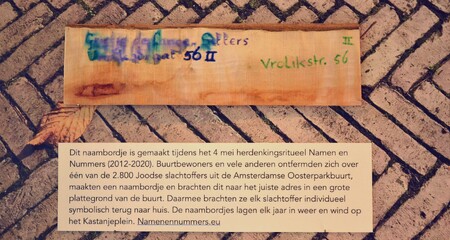 II
56 II
Vrolikstr. 56
Dit naambordje is gemaakt tijdens het 4 mei herdenkingsritueel Namen en
Nummers (2012-2020). Buurtbewoners en vele anderen ontfermden zich over
één van de 2.800 Joodse slachtoffers uit de Amsterdamse Oosterparkbuurt,
maakten een naambordje en brachten dit naar het juiste adres in een grote
plattegrond van de buurt. Daarmee brachten ze elk slachtoffer individueel
symbolisch terug naar huis. De naambordjes lagen elk jaar in weer en wind op
het Kastanjeplein. Namenennummers.eu